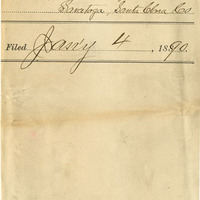 Saratoga, Santa Clara Co
Filed Jan'y 4, 1890.